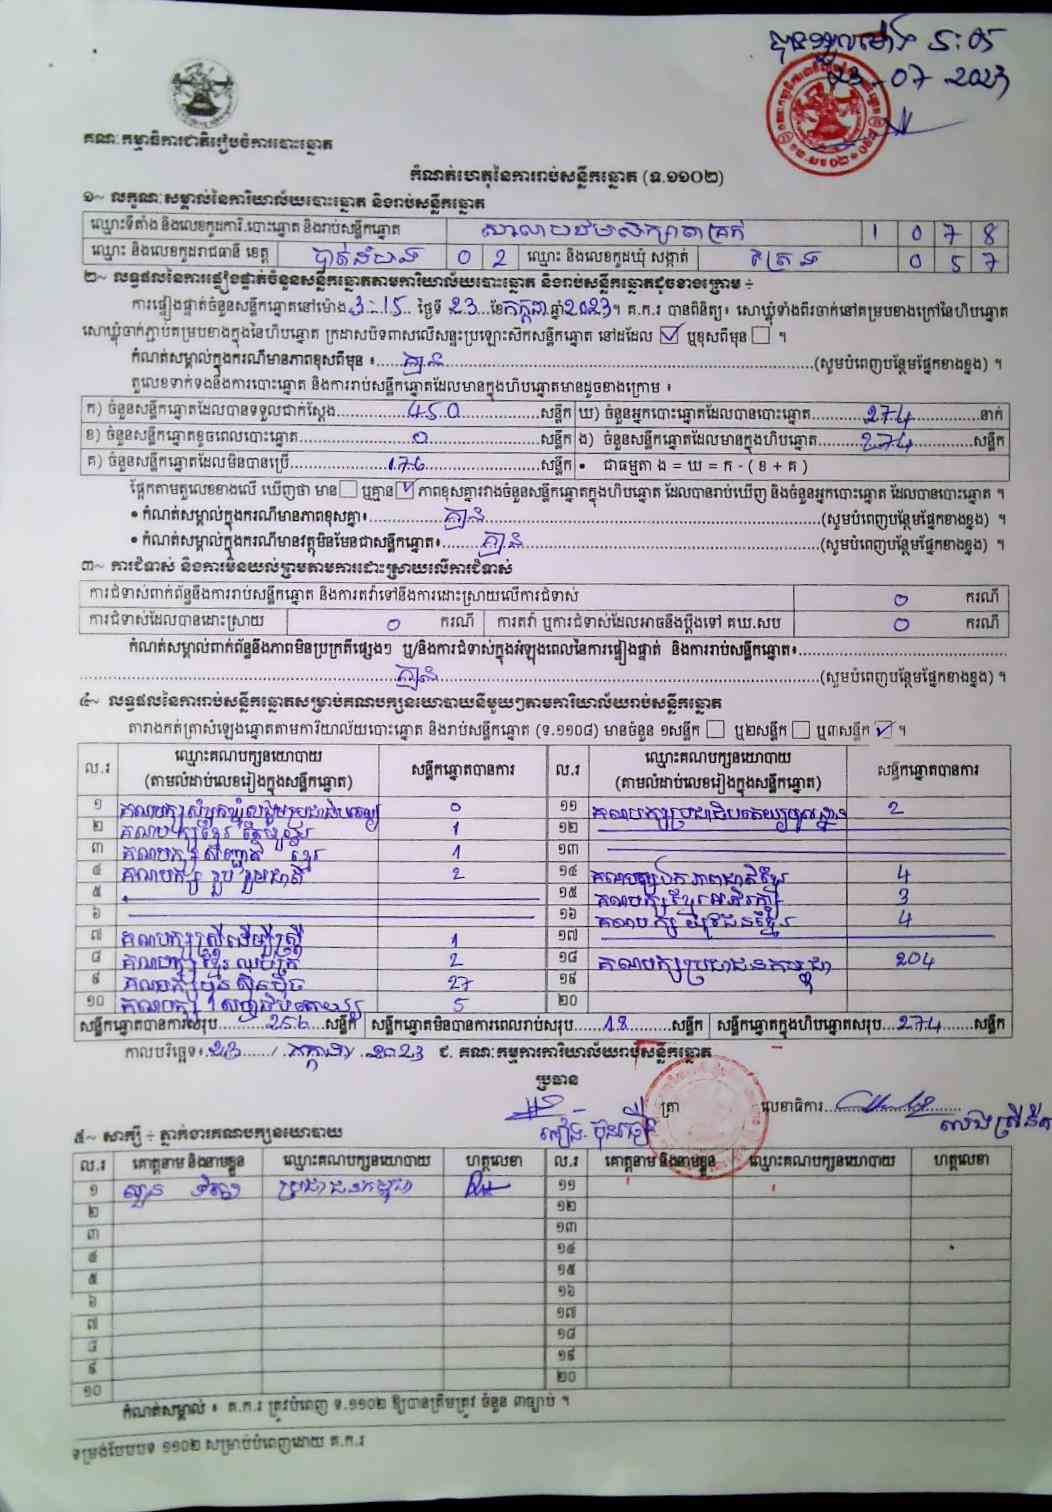 បានទទួលម៉ោង ៖ 05
23 - 07 - 2023
គណៈកម្មាធិការជាតិរៀបចំការបោះឆ្នោត
កំណត់ហេតុនៃការរាប់សន្លឹកឆ្នោត (ទ.១១០២)
១~ លក្ខណៈសម្គាល់នៃការិយាល័យបោះឆ្នោត និងរាប់សន្លឹកឆ្នោត
ឈ្មោះទីតាំង និងលេខកូដការិ.បោះឆ្នោត និងរាប់សន្លឹកឆ្នោត សាលាបឋមសិក្សាតាគ្រក់ 1 0 7 8
ឈ្មោះ និងលេខកូដរាជធានី ខេត្ត បាត់ដំបង 0 2 ឈ្មោះ និងលេខកូដឃុំ សង្កាត់ តាត្រែង 0 5 7
២~ លទ្ធផលនៃការផ្ទៀងផ្ទាត់ចំនួនសន្លឹកឆ្នោតតាមការិយាល័យបោះឆ្នោត និងរាប់សន្លឹកឆ្នោតដូចខាងក្រោម ÷
ការផ្ទៀងផ្ទាត់ចំនួនសន្លឹកឆ្នោតនៅម៉ោង 3:15 ថ្ងៃទី 23 ខែ កក្កដា ឆ្នាំ 2023។ គ.ក.រ បានពិនិត្យ៖ សោឃ្លុំទាំងពីរចាក់នៅគម្របខាងក្រៅនៃហិបឆ្នោត
សោឃ្លុំចាក់ភ្ជាប់គម្របខាងក្នុងនៃហិបឆ្នោត ក្រដាសបិទពាសលើសន្ទះប្រឡោះស៊កសន្លឹកឆ្នោត នៅដដែល ☑ ឬខុសពីមុន ☐ ។
កំណត់សម្គាល់ក្នុងករណីមានភាពខុសពីមុន ៖ គ្មាន (សូមបំពេញបន្ថែមផ្នែកខាងខ្នង) ។
តួលេខទាក់ទងនឹងការបោះឆ្នោត និងការរាប់សន្លឹកឆ្នោតដែលមានក្នុងហិបឆ្នោតមានដូចខាងក្រោម ៖
ក) ចំនួនសន្លឹកឆ្នោតដែលបានទទួលជាក់ស្តែង 450 សន្លឹក ឃ) ចំនួនអ្នកបោះឆ្នោតដែលបានបោះឆ្នោត 274 នាក់
ខ) ចំនួនសន្លឹកឆ្នោតខូចពេលបោះឆ្នោត 0 សន្លឹក ង) ចំនួនសន្លឹកឆ្នោតដែលមានក្នុងហិបឆ្នោត 274 សន្លឹក
គ) ចំនួនសន្លឹកឆ្នោតដែលមិនបានប្រើ 176 សន្លឹក • ជាធម្មតា ង = ឃ = ក - ( ខ + គ )
ផ្អែកតាមតួលេខខាងលើ ឃើញថា មាន ☐ ឬគ្មាន ☑ ភាពខុសគ្នារវាងចំនួនសន្លឹកឆ្នោតក្នុងហិបឆ្នោត ដែលបានរាប់ឃើញ និងចំនួនអ្នកបោះឆ្នោត ដែលបានបោះឆ្នោត ។
• កំណត់សម្គាល់ក្នុងករណីមានភាពខុសគ្នា៖ គ្មាន (សូមបំពេញបន្ថែមផ្នែកខាងខ្នង) ។
• កំណត់សម្គាល់ក្នុងករណីមានវត្ថុមិនមែនជាសន្លឹកឆ្នោត៖ គ្មាន (សូមបំពេញបន្ថែមផ្នែកខាងខ្នង) ។
៣~ ការជំទាស់ និងការមិនយល់ព្រមតាមការដោះស្រាយលើការជំទាស់
ការជំទាស់ពាក់ព័ន្ធនឹងការរាប់សន្លឹកឆ្នោត និងការតវ៉ាទៅនឹងការដោះស្រាយលើការជំទាស់ 0 ករណី
ការជំទាស់ដែលបានដោះស្រាយ 0 ករណី ការតវ៉ា ឬការជំទាស់ដែលអាចនឹងប្តឹងទៅ គឃ.សប 0 ករណី
កំណត់សម្គាល់ពាក់ព័ន្ធនឹងភាពមិនប្រក្រតីផ្សេងៗ ឬ/និងការជំទាស់ក្នុងអំឡុងពេលនៃការផ្ទៀងផ្ទាត់ និងការរាប់សន្លឹកឆ្នោត៖
គ្មាន (សូមបំពេញបន្ថែមផ្នែកខាងខ្នង) ។
៤~ លទ្ធផលនៃការរាប់សន្លឹកឆ្នោតសម្រាប់គណបក្សនយោបាយនីមួយៗតាមការិយាល័យរាប់សន្លឹកឆ្នោត
តារាងកត់ត្រាសំឡេងឆ្នោតតាមការិយាល័យបោះឆ្នោត និងរាប់សន្លឹកឆ្នោត (ទ.១១០៨) មានចំនួន ១សន្លឹក ☐ ឬ២សន្លឹក ☐ ឬ៣សន្លឹក ☑ ។
ល.រ ឈ្មោះគណបក្សនយោបាយ (តាមលំដាប់លេខរៀងក្នុងសន្លឹកឆ្នោត) សន្លឹកឆ្នោតបានការ ល.រ ឈ្មោះគណបក្សនយោបាយ (តាមលំដាប់លេខរៀងក្នុងសន្លឹកឆ្នោត) សន្លឹកឆ្នោតបានការ
១ គណបក្សសំបុកឃ្មុំសង្គមប្រជាធិបតេយ្យ 0 ១១ គណបក្សប្រជាធិបតេយ្យមូលដ្ឋាន 2
២ គណបក្សខ្មែរ 1 ១២
៣ គណបក្ស សញ្ជាតិ ខ្មែរ 1 ១៣
៤ គណបក្ស រួបរួមជាតិ 2 ១៤ គណបក្សឯកភាពជាតិខ្មែរ 4
៥ ១៥ គណបក្សខ្មែរអភិរក្ស 3
៦ ១៦ គណបក្ស យុវជនខ្មែរ 4
៧ គណបក្សស្ត្រីដើម្បីស្ត្រី 1 ១៧
៨ គណបក្សខ្មែរឈប់ក្រ 2 ១៨ គណបក្សប្រជាជនកម្ពុជា 204
៩ គណបក្សហ៊្វុនស៊ិនប៉ិច 27 ១៩
១០ គណបក្ស ធម្មាធិបតេយ្យ 5 ២០
សន្លឹកឆ្នោតបានការសរុប 256 សន្លឹក សន្លឹកឆ្នោតមិនបានការពេលរាប់សរុប 18 សន្លឹក សន្លឹកឆ្នោតក្នុងហិបឆ្នោតសរុប 274 សន្លឹក
កាលបរិច្ឆេទ៖ 23 / កក្កដា / 2023 ជ. គណៈកម្មការការិយាល័យរាប់សន្លឹកឆ្នោត
ប្រធាន
ត្រា លេខាធិការ
៥~ សាក្សី ÷ ភ្នាក់ងារគណបក្សនយោបាយ
ល.រ គោត្តនាម និងនាមខ្លួន ឈ្មោះគណបក្សនយោបាយ ហត្ថលេខា ល.រ គោត្តនាម និងនាមខ្លួន ឈ្មោះគណបក្សនយោបាយ ហត្ថលេខា
១ ប្រជាជនកម្ពុជា ១១
២ ១២
៣ ១៣
៤ ១៤
៥ ១៥
៦ ១៦
៧ ១៧
៨ ១៨
៩ ១៩
១០ ២០
កំណត់សម្គាល់ ៖ គ.ក.រ ត្រូវបំពេញ ទ.១១០២ ឱ្យបានត្រឹមត្រូវ ចំនួន ៣ច្បាប់ ។
ទម្រង់បែបបទ ១១០២ សម្រាប់បំពេញដោយ គ.ក.រ